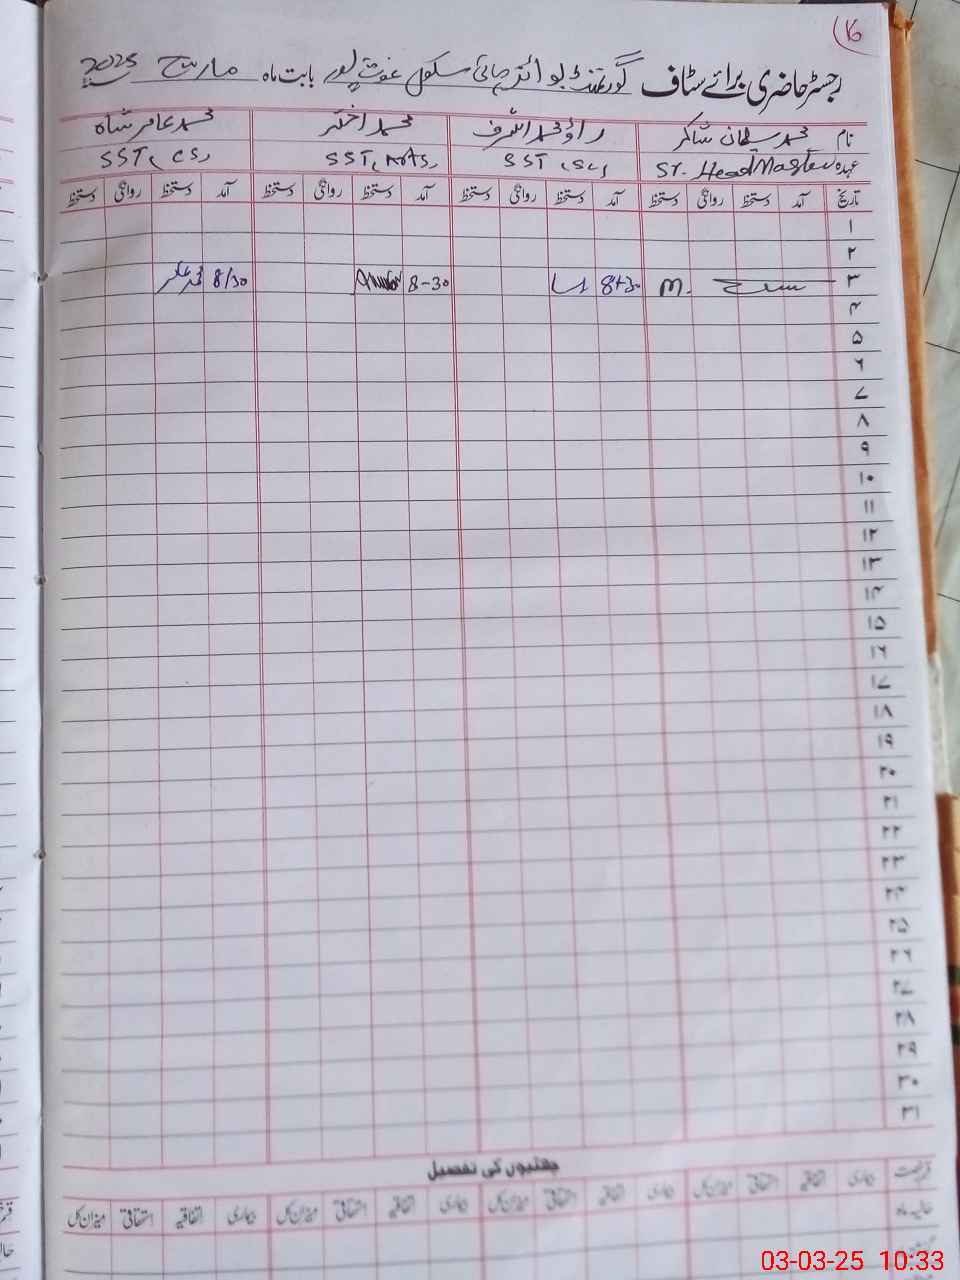 16
رجسٹر حاضری برائے سٹاف گورنمنٹ بوائز ہائی سکول غوث پور بابت ماہ مارچ 2025
نام محمد سلطان شاکر راؤ محمد اشرف محمد اختر محمد عامر شاہ
عہدہ Sr. Head Master SST (Sc) SST (Arts) SST (CS)
تاریخ آمد دستخط روانگی دستخط آمد دستخط روانگی دستخط آمد دستخط روانگی دستخط آمد دستخط روانگی دستخط
۱
۲
۳ m. 8+30 8-30 8/30
۴
۵
۶
۷
۸
۹
۱۰
۱۱
۱۲
۱۳
۱۴
۱۵
۱۶
۱۷
۱۸
۱۹
۲۰
۲۱
۲۲
۲۳
۲۴
۲۵
۲۶
۲۷
۲۸
۲۹
۳۰
۳۱
چھٹیوں کی تفصیل
قسم رخصت بیماری اتفاقیہ استحقاقی میزان کل بیماری اتفاقیہ استحقاقی میزان کل بیماری اتفاقیہ استحقاقی میزان کل بیماری اتفاقیہ استحقاقی میزان کل
حالیہ ماہ
03-03-25 10:33